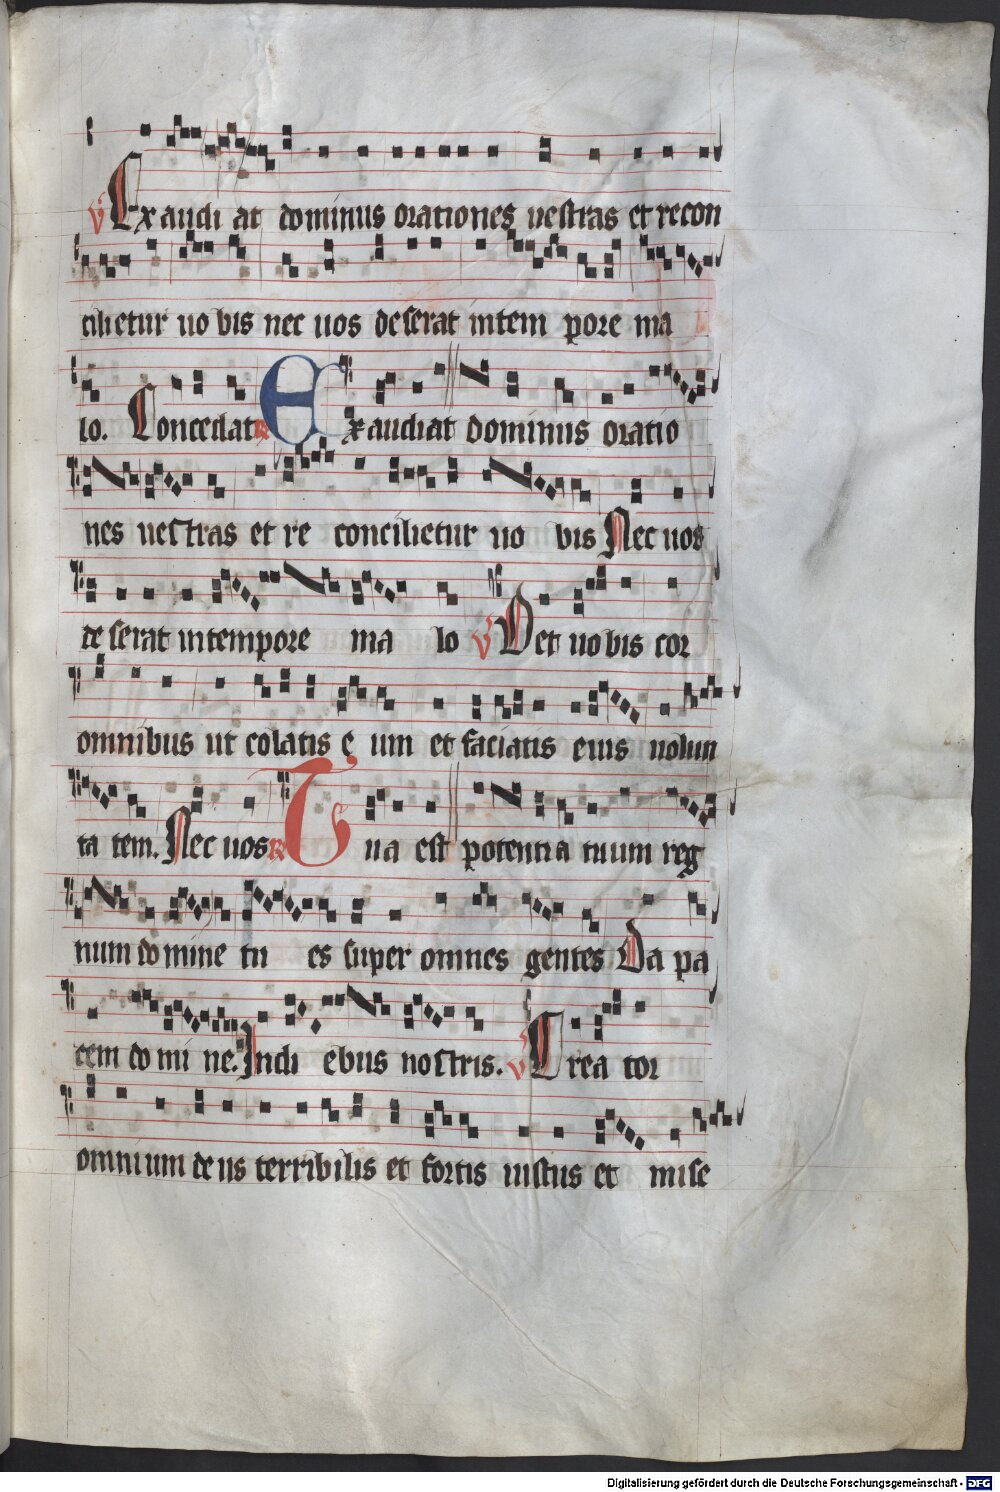 v Exaudi at dominus orationes uestras et recon
cilietur uo bis nec uos deserat intem pore ma
lo. Concedat R Exaudiat dominus oratio
nes uestras et re concilietur uo bis Nec uos
de serat intempore ma lo v Det uobis cor
omnibus ut colatis e um et faciatis eius uolun
ta tem. Nec uos R Tua est potentia tuum reg
num domine tu es super omnes gentes Da pa
cem do mi ne. Indi ebus nostris. v Crea tor
omnium deus terribilis et fortis iustus et mise
Digitalisierung gefördert durch die Deutsche Forschungsgemeinschaft - DFG